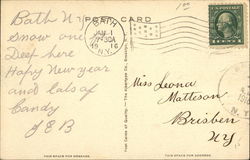 Bath N.Y.
Snow one
Deep here
Hapy New year
and lots of
Candy
J E B
POST CARD
BATH
JAN 1
1916
N.Y.
Miss Leona
Matteson
Brisben
NY
THIS SPACE FOR MESSAGE.
THIS SPACE FOR ADDRESS.